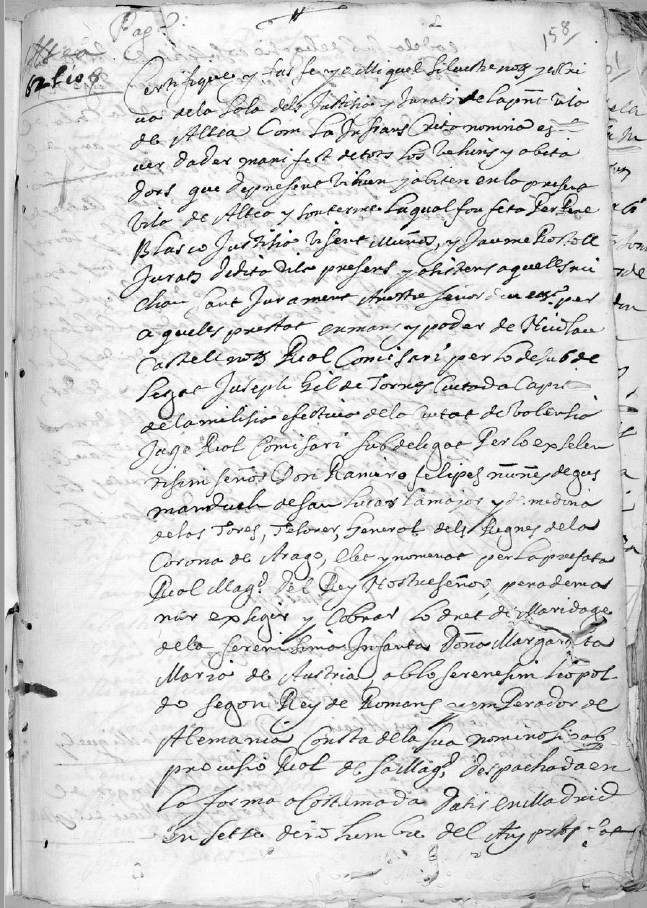 Pag.
158
Altea
62 ℔ 10 s
Certifique y fas fe yo Miquel Silvestre not. y escri
va de la Sala dels Justisia y Jurats de la pnt vila
de Altea Com la infraes Crita nomina es
ver dader manifest de tots los vehins y abita
dors que de present vihuen y abiten en la present
vila de Altea y son terme la qual fon feta per Pere
Blasco Justisia Visent Muños, y Jaume Rostoll
Jurats de dita vila presens y asistens aquells mi
chan sant Jurament a nostre señor deu etc. per
aquells prestat en mans y poder de Nicolau
Castell not. Real Comisari per lo de sub de
legat Joseph Gil de Torres Ciutada Capita
de la milisia efectiva de la ciutat de Valensia
Jage Real Comisari subdelegat Per lo exselen
tisim señor Don Ramiro felipes nuñes de gus
man duch de san lucar la major y de medina
de las Tores, Tesorer, General dels Regnes de la
Corona de Arago, elet y nomenat per la prefata
Real Magt. del Rey Nostre señor, per a dema
nar exsigir y Cobrar lo dret de Maridage
de la Serenisima Infanta Doña Margarita
Maria de Austria ab lo serenisim leopol
do segon Rey de Romans y emperador de
Alemania Consta de la sua nomino si ab
provisio Real de sa Magt. despachada en
la forma acostumada Datis en Madrid
en set de dehembre del Any prop pat